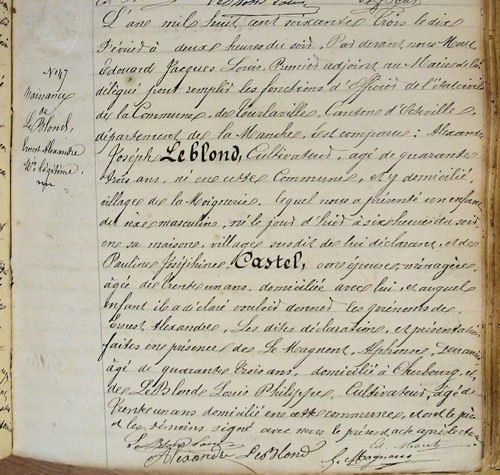 N° 47
Naissance
de
Le Blond,
Ernest Alexandre
légitime
L'an mil huit cent soixante trois le dix
Février à deux heures du soir, Par devant nous
Edouard Jacques Louis, Premier adjoint au Maire
délégué pour remplir les fonctions d'Officier de l'état civil
de la Commune de Tourlaville, Canton d'Octeville,
département de la Manche, Est comparu : Alexandre
Joseph Leblond, Cultivateur, âgé de quarante
trois ans, né en cette Commune, et y domicilié
village de la lequel nous a présenté un enfant
du sexe masculin, né le jour d'hier à six heures du soir,
en sa maison, village susdit de lui déclarant, et de
Pauline Joséphine Castel, son épouse, ménagère,
âgée de trente un ans, domiciliée avec lui, et auquel
enfant il a déclaré vouloir donner les prénoms de
Ernest Alexandre. Les dites déclaration et présentation
faites en présence de Le Magnent, Alphonse,
âgé de quarante trois ans, domicilié à Cherbourg, et
de Le Blond Louis Philippe, Cultivateur, âgé de
trente un ans domicilié en cette commune, et ont le père
et les témoins signé avec nous le présent acte après lecture
Alexandre Le Blond